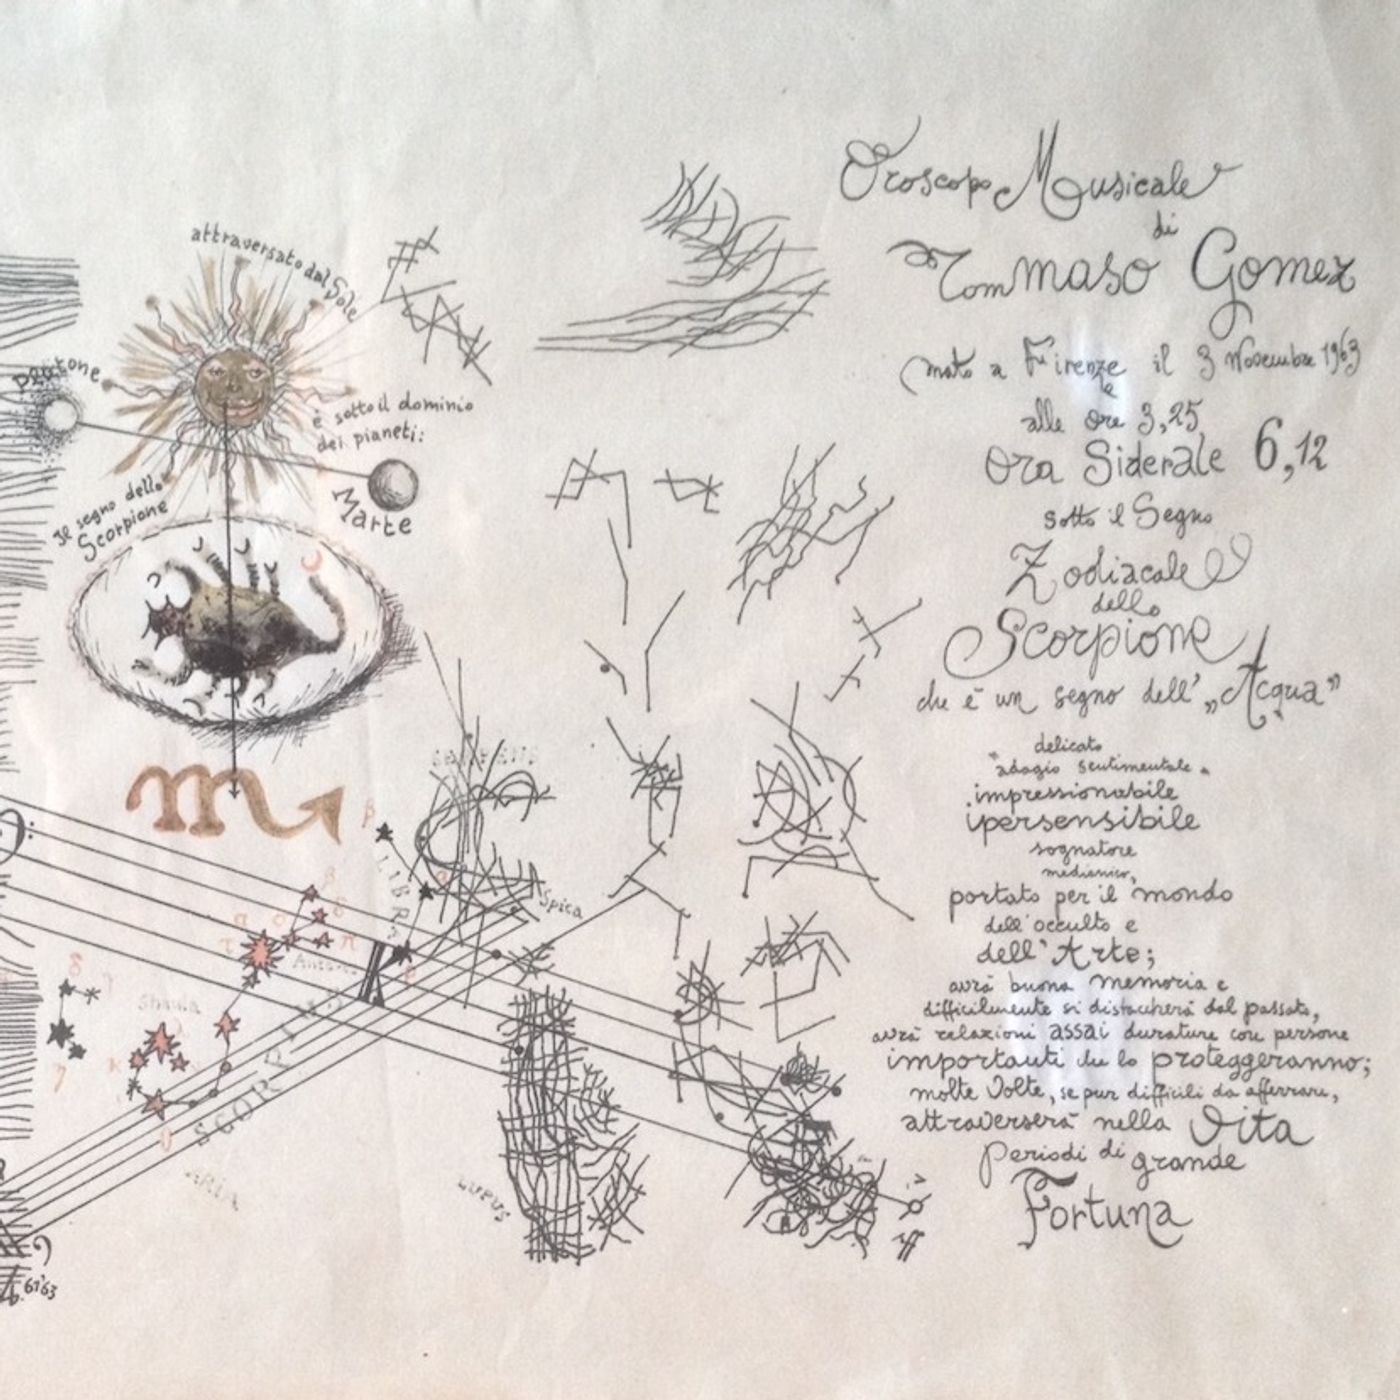 attraversato dal Sole
Plutone
è sotto il dominio
dei pianeti:
Marte
Il segno dello
Scorpione
β
LIBRA
Spica
Shaula
SCORPIUS
LUPUS
61'63
Oroscopo Musicale
di
Tommaso Gomez
nato a Firenze il 3 Novembre 1963
alle ore 3,25
Ora Siderale 6,12
sotto il Segno
Zodiacale
dello
Scorpione
che è un segno dell' „Acqua”
delicato
"adagio sentimentale"
impressionabile
ipersensibile
sognatore
medianico,
portato per il mondo
dell'occulto e
dell'Arte;
avrà buona memoria e
difficilmente si distaccherà dal passato,
avrà relazioni assai durature con persone
importanti che lo proteggeranno;
molte Volte, se pur difficili da afferrare,
attraverserà nella Vita
periodi di grande
Fortuna